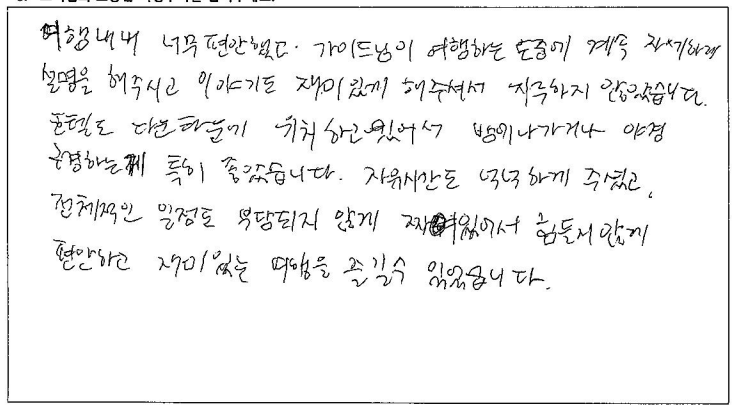 여행내내 너무 편안했다. 가이드님이 여행하는 도중에 계속 자세하게
설명을 해주시고 이야기도 재미있게 해주셔서 지루하지 않았습니다.
호텔도 다운타운에 위치하고 있어서 밤에 나가거나 야경
구경하는게 특히 좋았습니다. 자유시간도 넉넉하게 주셨고,
전체적인 일정도 부담되지 않게 짜여있어서 힘들지 않게
편안하고 재미있는 여행을 즐길수 있었습니다.